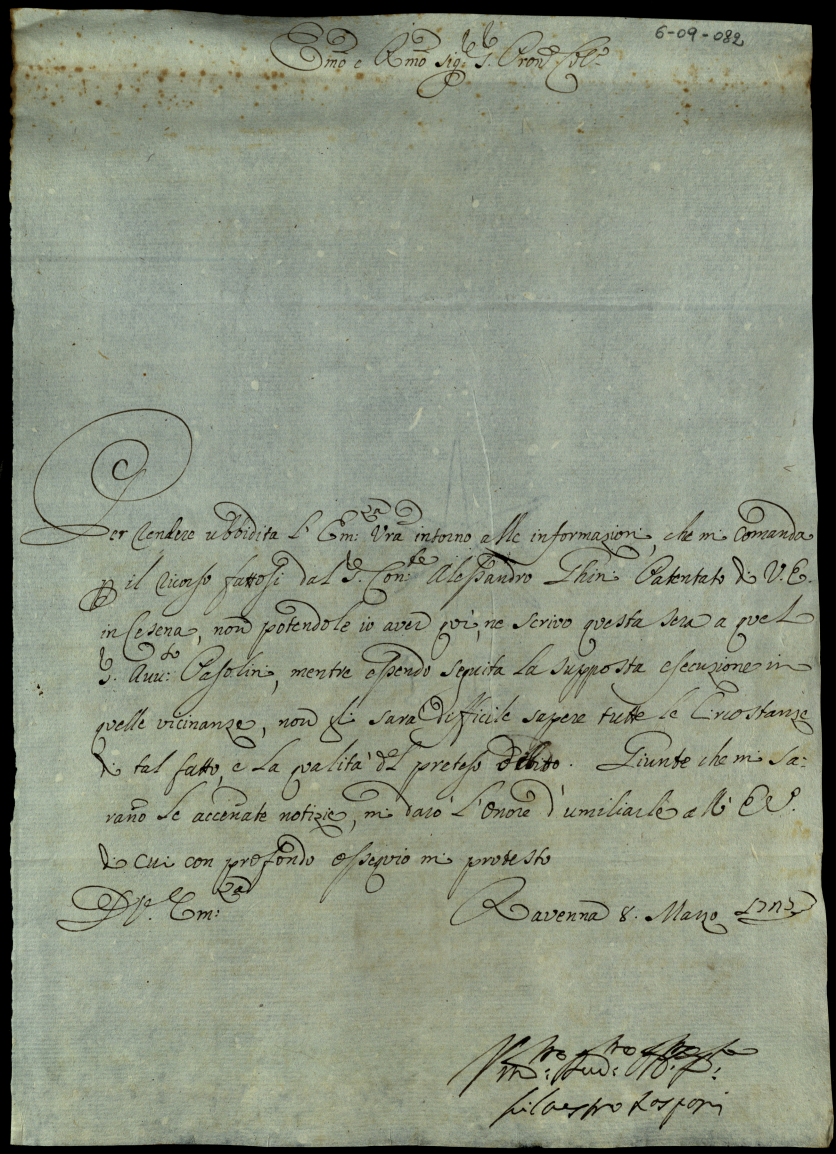 6-09-082
Emo e Rmo Sigr. S. Pron Col.
Per rendere ubbidita l'Em:za Vra intorno alle informazioni, che mi comanda
p il ricorso fattosi dal S. Con:te Alessandro Ghini Patentato di V. E.
in Cesena, non potendole io aver qui, ne scrivo questa sera a quel
S. Avv:to Pasolini, mentre essendo seguita la supposta esecuzione in
quelle vicinanze, non gli sarà difficile sapere tutte le Circostanze
di tal fatto, e la qualità del preteso debito. Giunte che mi sa:
rano le accennate notizie, mi darò l'onore d'umiliarle all' E. V.
di cui con profondo ossequio mi protesto
D. V. Em:za
Ravenna 8. Marzo
Silvestro Rasponi